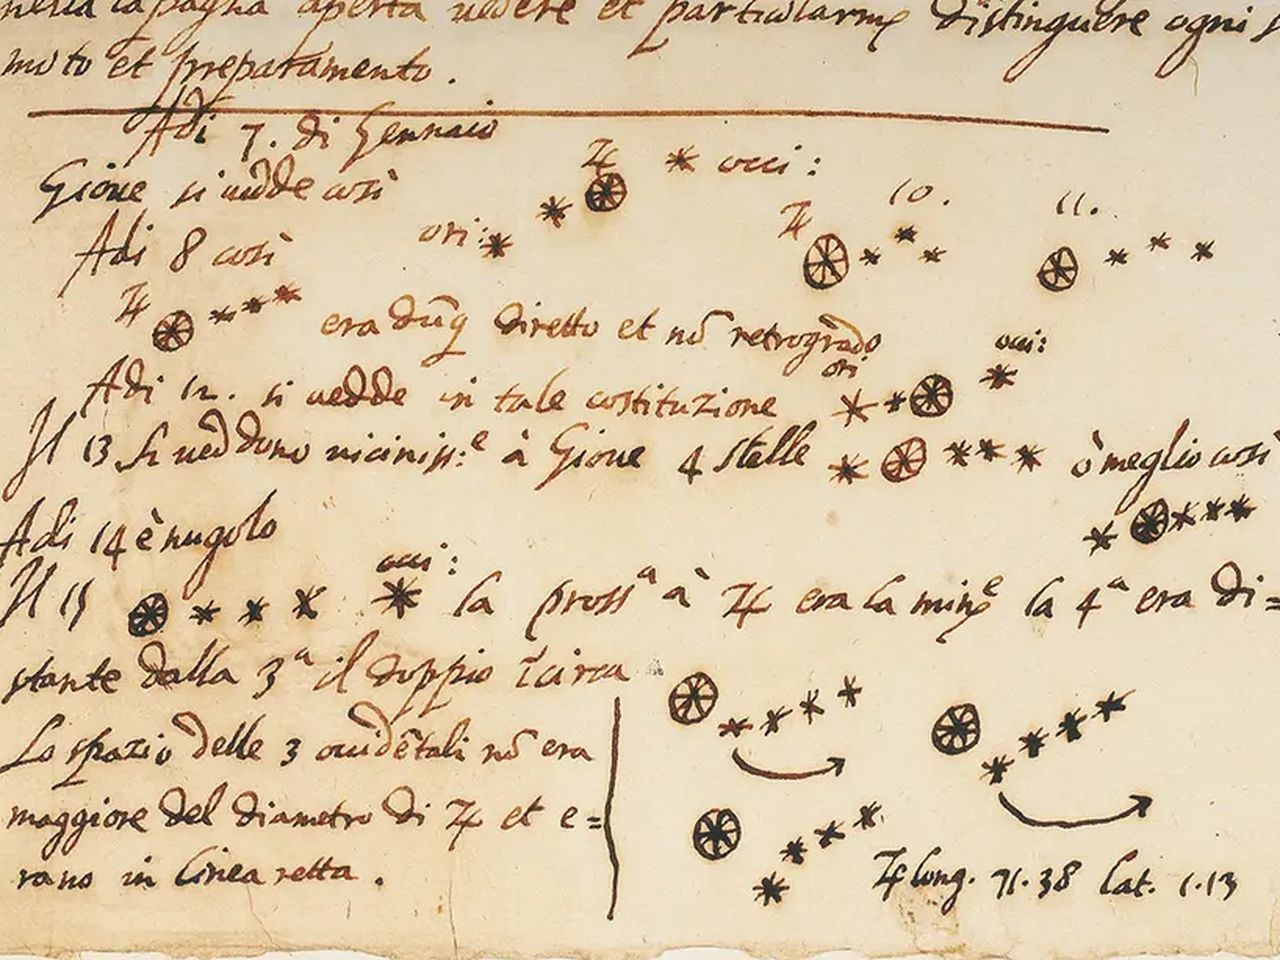 nella capagna aperta vedere et particularmẽ distinguere ogni s
moto et preparamento.
Adi 7. di Gennaio
Gioue si vedde così ♃ * occi:
ori:
Adi 8 così ♃ 10. 11.
♃ era dũq diretto et nõ retrogrado
Adi 12. si uedde in tale costituzione ori occi:
Il 13 si ueddono vicinissᵉ à Gioue 4 stelle ò meglio così
Adi 14 è nugolo
Il 15 occi: la prossᵃ à ♃ era la minᵉ la 4ᵃ era di=
stante dalla 3ᵃ il doppio ĩcirca
Lo spazio delle 3 occidẽtali nõ era
maggiore del diametro di ♃ et e=
rano in linea retta.
♃ long. 71.38 lat. 1.13